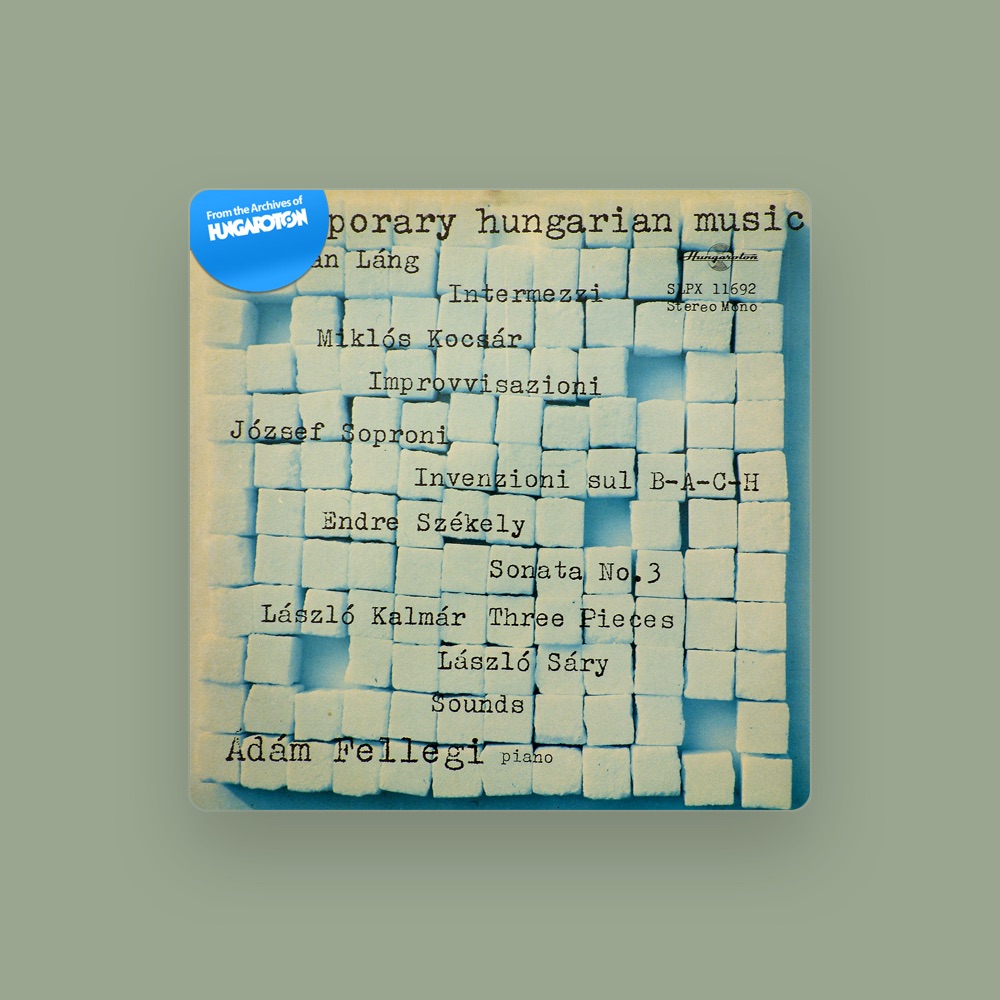 From the Archives of
HUNGAROTON
porary hungarian music
an Láng
Hungaroton
Intermezzi
SLPX 11692
Stereo Mono
Miklós Kocsár
Improvvisazioni
József Soproni
Invenzioni sul B-A-C-H
Endre Székely
Sonata No.3
László Kalmár Three Pieces
László Sáry
Sounds
Ádám Fellegi piano